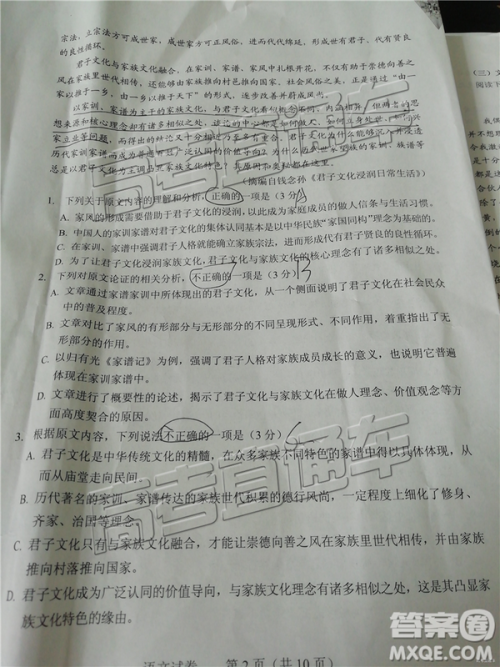 宗法，立宗法方可成世家，成世家方可正风俗，进而代代绵延，形成有君子、代有贤良
的良性循环。
君子文化与家族文化融合，在家训、家谱、家风中扎根开花，有助于崇德向善之
风在家族里世代相传，还能够由家族推向村邑推向国家、社会俗之美，正是通过“由一
家以推于一乡，由一乡以推于天下”的形式，逐步改善并蔚成风
以家训、家谱为主干的家族文化，与君子文化看
想来源和核心理念却有诸多相似之处，
历代家训家谱
（摘编自钱念孙《君子文化浸润日常生活》）
1. 下列关于原文内容的理解和分析，正确的一项是（3分）
A. 家风的形成需要借助于君子文化的浸润，以此成为家庭成员的做人信条与生活习惯。
B. 中国人的家训家谱对君子文化的集体认同基本是以中华民族“家国同构”理念为基础的。
C. 在家训、家谱中强调君子人格就能确立家族宗法，进而历代有君子贤良的良性循环。
D. 为了让君子文化浸润家族文化，君子文化与家族文化的核心理念有了诸多相似之处。
2. 下列对原文论证的相关分析，不正确的一项是（3分）
A. 文章通过家谱家训中所体现出的君子文化，从一个侧面说明了君子文化在社会民众
中的普及程度。
B. 文章对比了家风的有形部分与无形部分的不同呈现形式、不同作用，着重强调了无形
部分的作用。
C. 以归有光《家谱记》为例，强调了君子人格对家族成员成长的意义，也说明它普遍
体现在家训家谱中。
D. 文章进行了概要性的论述，揭示了君子文化与家族文化在做人理念、价值观念等方
面高度契合的原因。
3. 根据原文内容，下列说法不正确的一项是（3分）
A. 君子文化是中华传统文化的精髓，在众多家族不同特色的家谱中得以具体体现，从
而从庙堂走向民间。
B. 历代著名的家训、家谱传达的家族世代积累的德行风尚，一定程度上细化了修身、
齐家、治国等理念。
C. 君子文化只有与家族文化融合，才能让崇德向善之风在家族世代相传，并由家族
推向村落推向国家。
D. 君子文化成为广泛认同的价值导向，与家族文化理念有诸多相似之处，这是其凸显家
族文化特色的缘由。
语文试卷 第2页（共10页）
高考直通车
高考直通车
答案圈
MXQE.COM